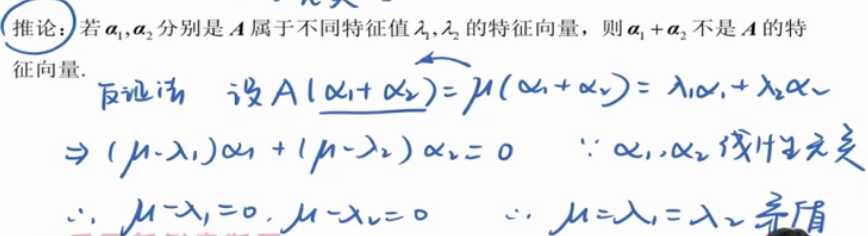 推论：若α₁,α₂分别是A属于不同特征值λ₁,λ₂的特征向量，则α₁+α₂不是A的特
征向量.
反证法 设A(α₁+α₂)=μ(α₁+α₂)=λ₁α₁+λ₂α₂
⇒(μ-λ₁)α₁+(μ-λ₂)α₂=0 ∵α₁,α₂线性无关
∴μ-λ₁=0. μ-λ₂=0 ∴μ=λ₁=λ₂矛盾